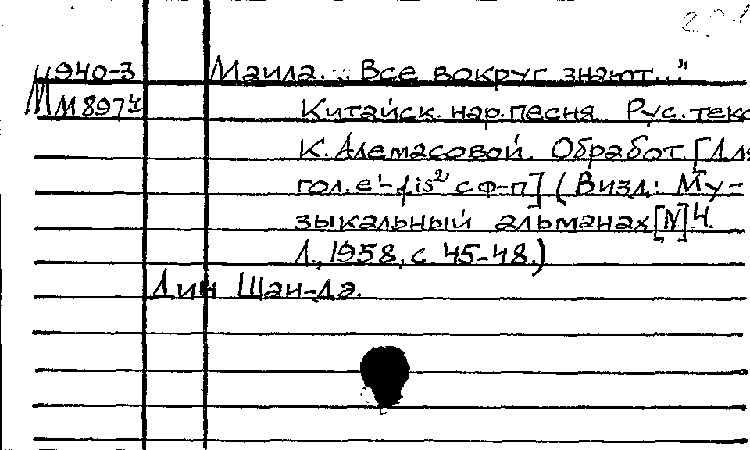 Ц940-3 Маила. „Все вокруг знают..."
М М897й Китайск. нар. песня. Рус. текс
К. Алемасовой. Обработ. [Для
гол. e'-fis² с ф-п] (В изд.: Му-
зыкальный альманах [N] 4.
Л., 1958, с. 45-48.)
Лин Шан-дэ.